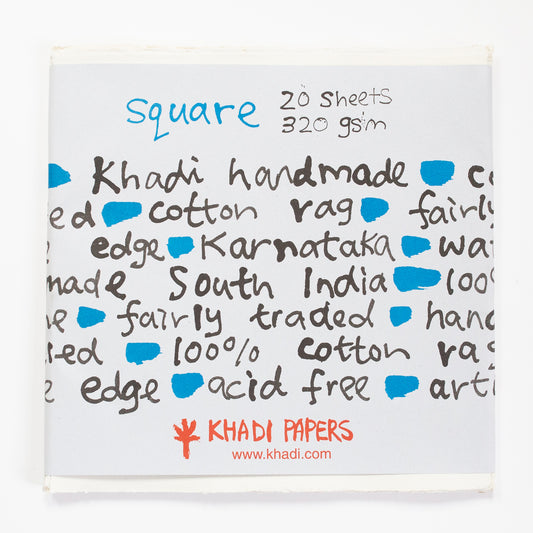 square 20 sheets
320 gsm
Khadi handmade co
ed cotton rag fairly
e edge Karnataka wat
made South India 100
ne fairly traded hand
ired 100% cotton rag
e edge acid free arti
KHADI PAPERS
www.khadi.com